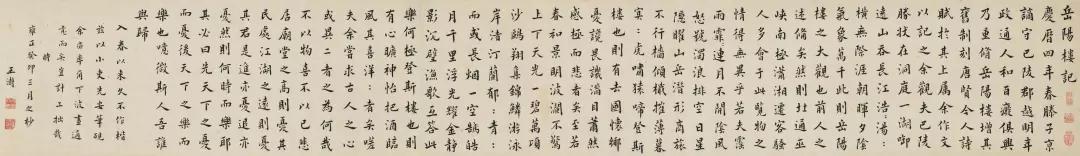 岳陽樓記
慶曆四年春滕子京
謫守巴陵郡越明年
政通人和百廢俱興
乃重修岳陽樓增其
舊制刻唐賢今人詩
賦於其上屬余作文
以記之余觀夫巴陵
勝狀在洞庭一湖啣
遠山吞長江浩:湯:
橫無際涯朝暉夕陰
氣象萬千此則岳陽
樓之大觀也前人之
述備矣然則北通巫
峽南極瀟湘遷客騷
人多會于此覽物之
情得無異乎若夫霪
雨霏:連月不開陰風
怒號濁浪排空日星
隱曜山岳潛形商旅
不行檣傾檝摧薄暮
冥:虎嘯猿啼登斯
樓也則有去國懷鄉
憂讒畏譏滿目蕭然
感極而悲者矣至若
春和景明波瀾不驚
上下天光一碧萬頃
沙鷗翔集錦鱗游泳
岸芷汀蘭郁:青:
而或長烟一空皓
月千里浮光耀金靜
影沉璧漁歌互答此
樂何極登斯樓也則
有心曠神怡把酒臨
風其喜洋:者矣嗟
夫余嘗求古人之心
或異二者之為何哉
不以物喜不以己悲
居廟堂之高則憂其
民處江湖之遠則憂
其君是進亦憂退亦
憂然則何時而樂耶
其必曰先天下之憂
而憂後天下之樂而
樂歟噫微斯人吾誰
與歸
入春以來久不作楷
茲以小史先安筆硯
竟而矣豈計工拙哉
時
雍正癸卯三月之杪
王澍